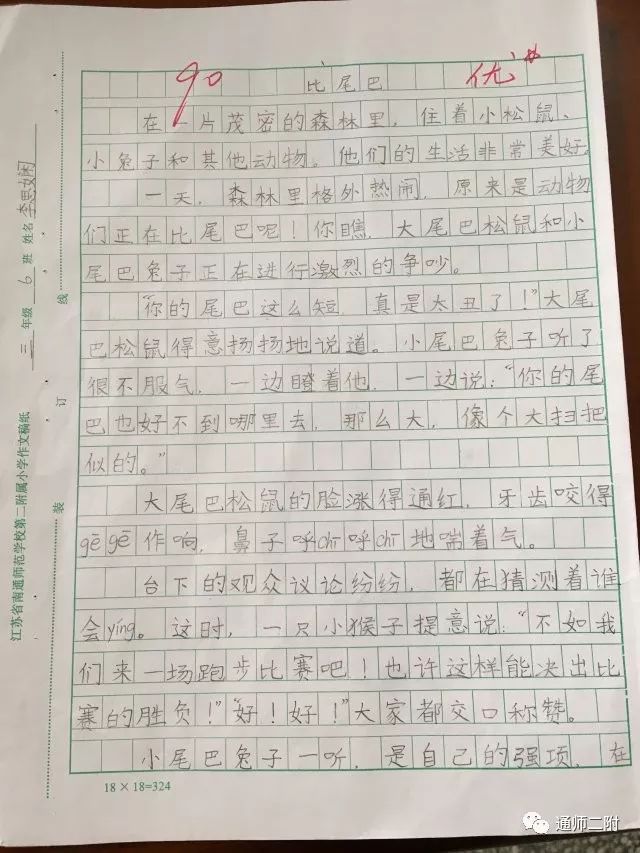 90 比尾巴 优
在一片茂密的森林里，住着小松鼠、
小兔子和其他动物。他们的生活非常美好。
一天，森林里格外热闹，原来是动物
们正在比尾巴呢！你瞧，大尾巴松鼠和小
尾巴兔子正在进行激烈的争吵。
“你的尾巴这么短，真是太丑了！”大尾
巴松鼠得意扬扬地说道。小尾巴兔子听了
很不服气，一边瞪着他，一边说：“你的尾
巴也好不到哪里去，那么大，像个大扫把
似的。”
大尾巴松鼠的脸涨得通红，牙齿咬得
gē gē作响，鼻子呼chī呼chī地喘着气。
台下的观众议论纷纷，都在猜测着谁
会yíng。这时，一只小猴子提意说：“不如我
们来一场跑步比赛吧！也许这样能决出比
赛的胜负！”“好！好！”大家都交口称赞。
小尾巴兔子一听，是自己的强项，在
18×18=324
江苏省南通师范学校第二附属小学作文稿纸
三 年级 6 班 姓名 李思娴
装 订 线
通师二附